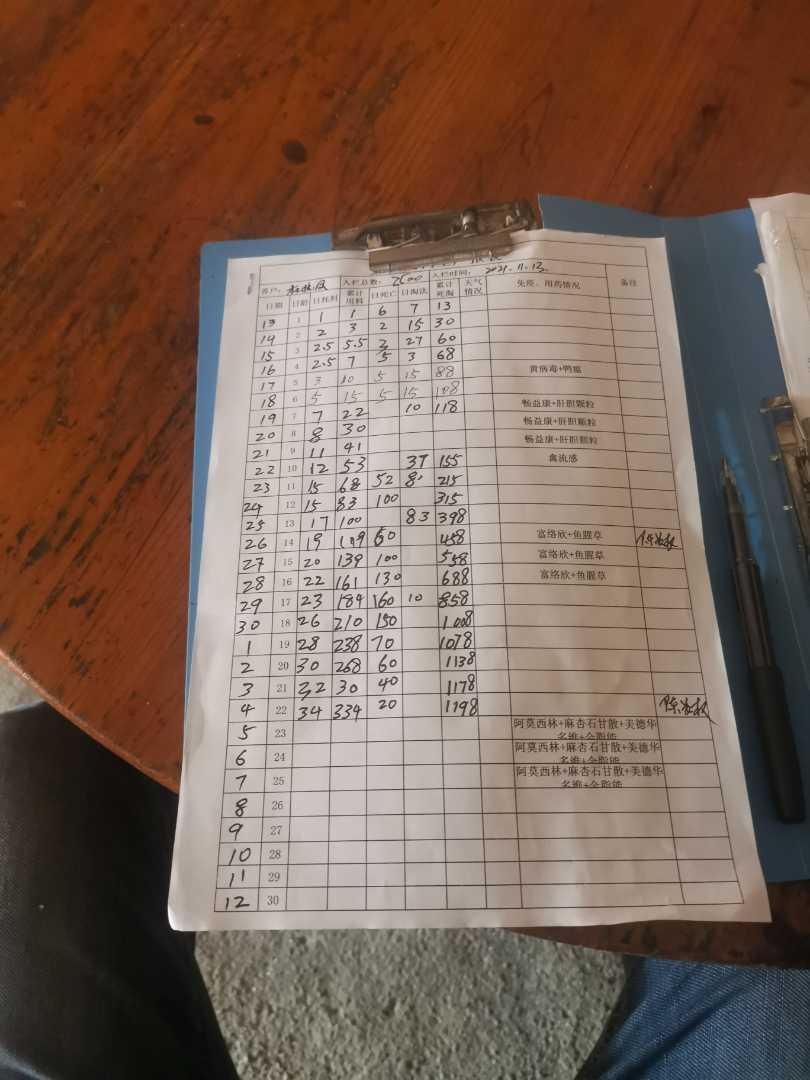 客户： 入栏总数：2600 入栏时间：2021.11.13
日期 日龄 日耗料 累计用料 日死亡 日淘汰 累计死淘 天气情况 免疫、用药情况 备注
13 1 1 1 6 7 13
14 2 2 3 2 15 30
15 3 2.5 5.5 3 27 60
16 4 2.5 7 5 3 68
17 5 3 10 5 15 88 黄病毒+鸭瘟
18 6 5 15 5 15 108
19 7 7 22 10 118 畅益康+肝胆颗粒
20 8 8 30 畅益康+肝胆颗粒
21 9 11 41 畅益康+肝胆颗粒
22 10 12 53 37 155 禽流感
23 11 15 68 52 8 215
24 12 15 83 100 315
25 13 17 100 83 398
26 14 19 119 60 458 富络欣+鱼腥草
27 15 20 139 100 558 富络欣+鱼腥草
28 16 22 161 130 688 富络欣+鱼腥草
29 17 23 184 160 10 858
30 18 26 210 150 1008
1 19 28 238 70 1078
2 20 30 268 60 1138
3 21 32 30 40 1178
4 22 34 334 20 1198
5 23 阿莫西林+麻杏石甘散+美德华
多维+全脂能
6 24 阿莫西林+麻杏石甘散+美德华
多维+全脂能
7 25 阿莫西林+麻杏石甘散+美德华
多维+全脂能
8 26
9 27
10 28
11 29
12 30